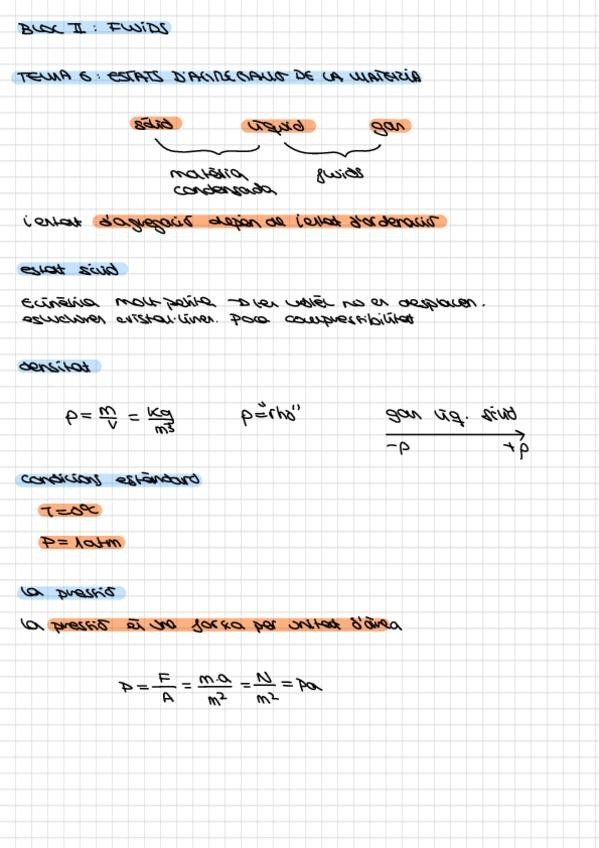 BLOC II: FLUIDS
TEMA 6: ESTATS D'AGREGACIÓ DE LA MATÈRIA
sòlid líquid gas
matèria fluids
condensada
l'estat d'agregació depèn de l'estat d'ordenació
estat sòlid
Ecinètica molt petita → les molèc no es desplacen.
estructures cristal·lines. Poca compressibilitat
densitat
ρ = m/V = Kg/m³ ρ = "rho" gas líq. sòlid
-ρ +ρ
condicions estàndard
T=0ºC
P= 1atm
la pressió
la pressió és una força per unitat d'àrea
P = F/A = m·a/m² = N/m² = Pa